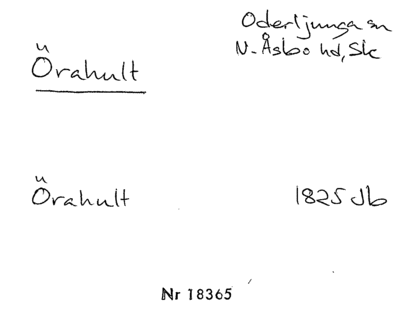 Örahult
Oderljunga sn
N. Åsbo hd, Sk
Örahult
1825 Jb
Nr 18365